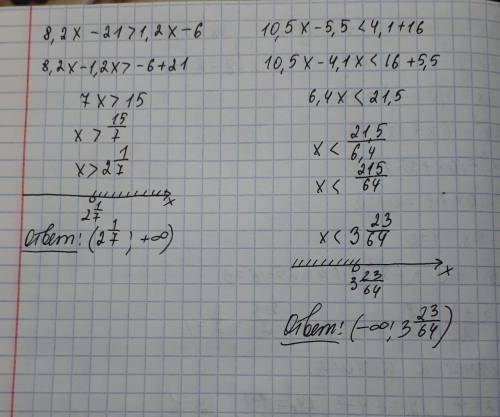 8,2x - 21 > 1,2x - 6
8,2x - 1,2x > -6 + 21
7x > 15
x > 15/7
x > 2 1/7
x
2 1/7
Ответ: (2 1/7 ; +∞)
10,5x - 5,5 < 4,1 + 16
10,5x - 4,1x < 16 + 5,5
6,4x < 21,5
x < 21,5/6,4
x < 215/64
x < 3 23/64
x
3 23/64
Ответ: (-∞; 3 23/64)